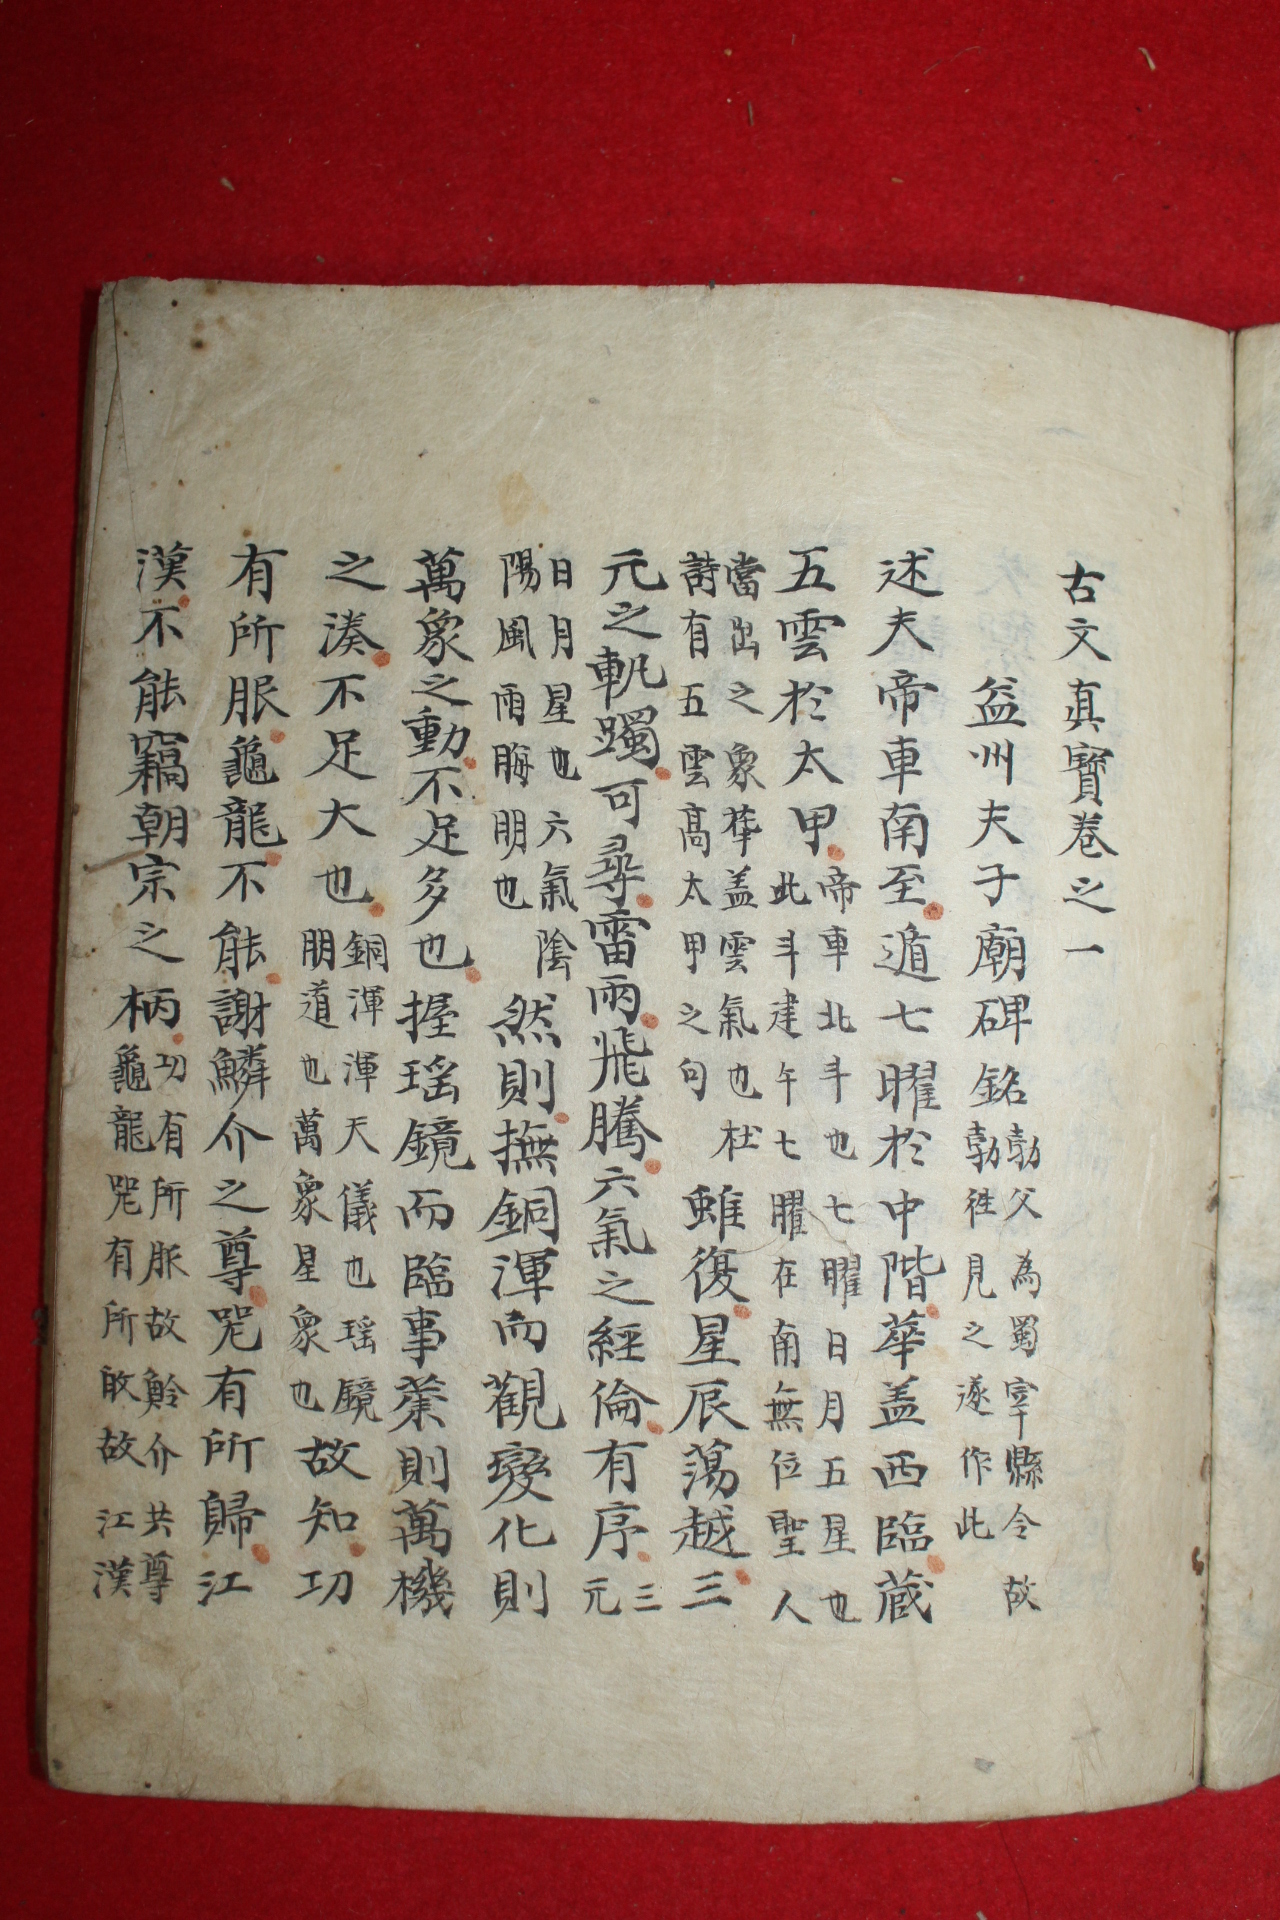 古文真寶卷之一
益州夫子廟碑銘勃父為蜀宰縣令故勃徃見之遂作此
述夫帝車南至遁七曜於中階華盖西臨蔵
五雲於太甲帝車北斗也七曜日月五星也此斗建午七曜在南無位聖人
當出之象華盖雲氣也杜詩有五雲髙太甲之句雖復星辰蕩越三
元之軌躅可尋雷雨飛騰六氣之經倫有序三元
日月星也六氣陰陽風雨晦明也然則撫銅渾而觀變化則
萬象之動不足多也握瑶鏡而臨事業則萬機
之湊不足大也銅渾渾天儀也瑶鏡明道也萬象星象也故知功
有所服龜龍不能謝鱗介之尊器有所歸江
漢不能竊朝宗之柄功有所服故介共尊龜龍有所故江漢